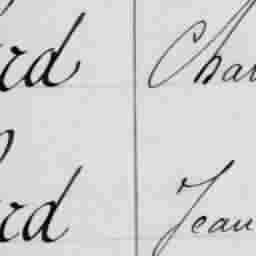 rd Char
rd Jean